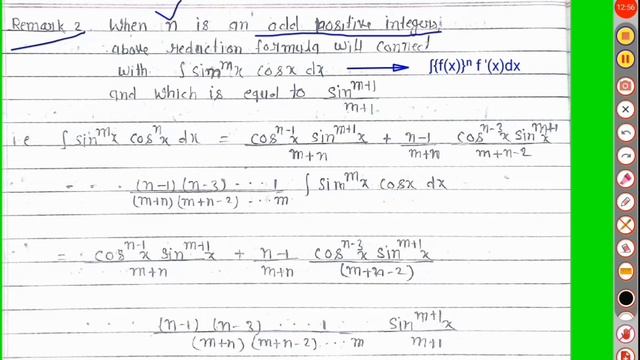 12:56
Remark 2 When n is an odd positive integers
above reduction formula will connect
with ∫ sinᵐx cosx dx → ∫{f(x)}ⁿ f '(x)dx
and which is equal to sinᵐ⁺¹ / m+1
i.e ∫ sinᵐx cosⁿx dx = cosⁿ⁻¹x sinᵐ⁺¹x / m+n + n-1 / m+n cosⁿ⁻³x sinᵐ⁺¹x / m+n-2
- - - (n-1) (n-3) - - - 1 / (m+n) (m+n-2) - - - m ∫ sinᵐx cosx dx
= cosⁿ⁻¹x sinᵐ⁺¹x / m+n + n-1 / m+n cosⁿ⁻³x sinᵐ⁺¹x / (m+n-2)
. . . (n-1) (n-3) . . . 1 / (m+n) (m+n-2) . . . m sinᵐ⁺¹x / m+1